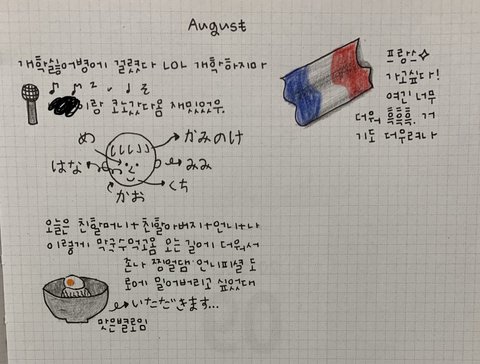 August
개학싫어병에 걸렸다 LOL 개학하지마
이랑 코노갔다옴 재밌었우.
め
かみのけ
はな
みみ
かお
くち
프랑스
가고싶다!
여긴 너무
더워 흑흑흑. 거
기도 더우려나
오늘은 친할머니+친할아버지+언니+나
이렇게 막국수먹고옴 오는 길에 더워서
존나 찡얼댐·언니피셜 도
로에 밀어버리고 싶었대
いただきます...
맛은별로임